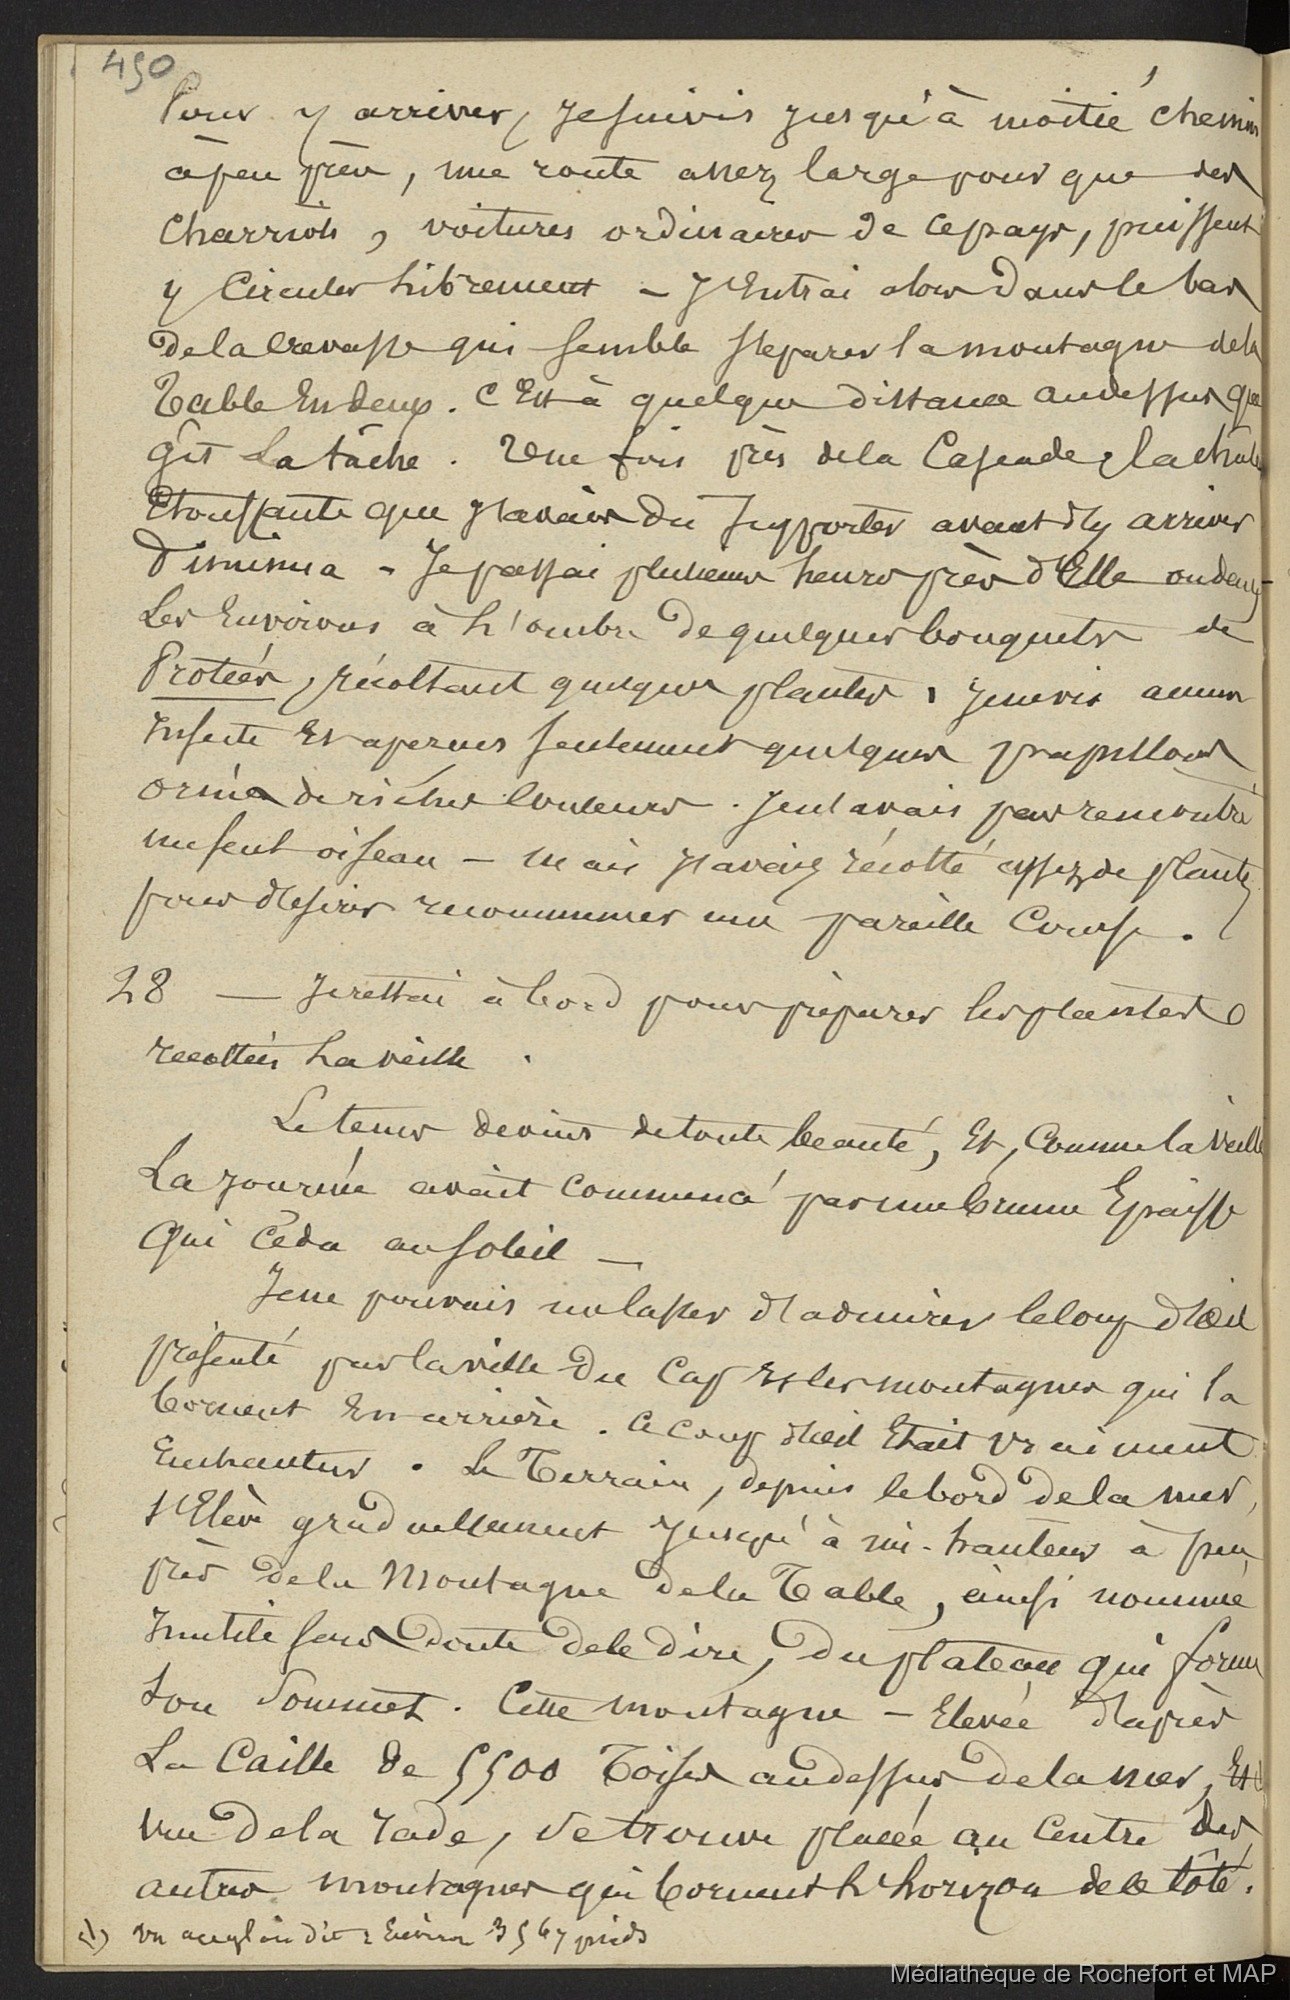 450
Pour y arriver, je suivis jusqu'à moitié chemin
à peu près, une route assez large pour que des
charriots, voitures ordinaires de ce pays, puissent
y circuler librement - J'entrai alors dans le bas
de la crevasse qui semble séparer la montagne de la
Table en deux. C'est à quelque distance au dessus que
gît la tâche. Une fois près de la Cascade, la chaleur
étouffante que j'avais du supporter avant d'y arriver
diminua - Je passai plusieurs heures près d'Elle ou dans
les Environs à l'ombre de quelques bouquets de
Protéés, récoltant quelques plantes, je ne vis aucun
insecte et aperçus seulement quelques papillons
ornés de riches couleurs. Je n'avais pas rencontré
un seul oiseau - mais j'avais récolté assez de plantes
pour désirer recommencer une pareille course.
28 — Je restai à bord pour préparer les plantes
récoltées la veille.
Le tems devint de toute beauté, et, comme la veille
La journée avait commencé par une brume Epaisse
qui céda au soleil —
Je ne pouvais me lasser d'admirer le coup d'œil
présenté par la ville du Cap et les montagnes qui la
bornent En arrière. Ce coup d'œil Etait vraiment
Enchanteur. Le Terrain, depuis le bord de la mer,
s'Elève graduellement jusqu'à mi-hauteur à peu
près de la Montagne de la Table, ainsi nommée
Inutile sans doute de le dire, du plateau qui forme
son sommet. Cette montagne - Elevée d'après
La Caille de 5500 Toises au dessus de la mer, Et
vue de la rade, se trouve placée au Centre des
autres montagnes qui bornent l'horizon de ce côté.
(1) un anglais dit : Environ 3567 pieds
Médiathèque de Rochefort et MAP